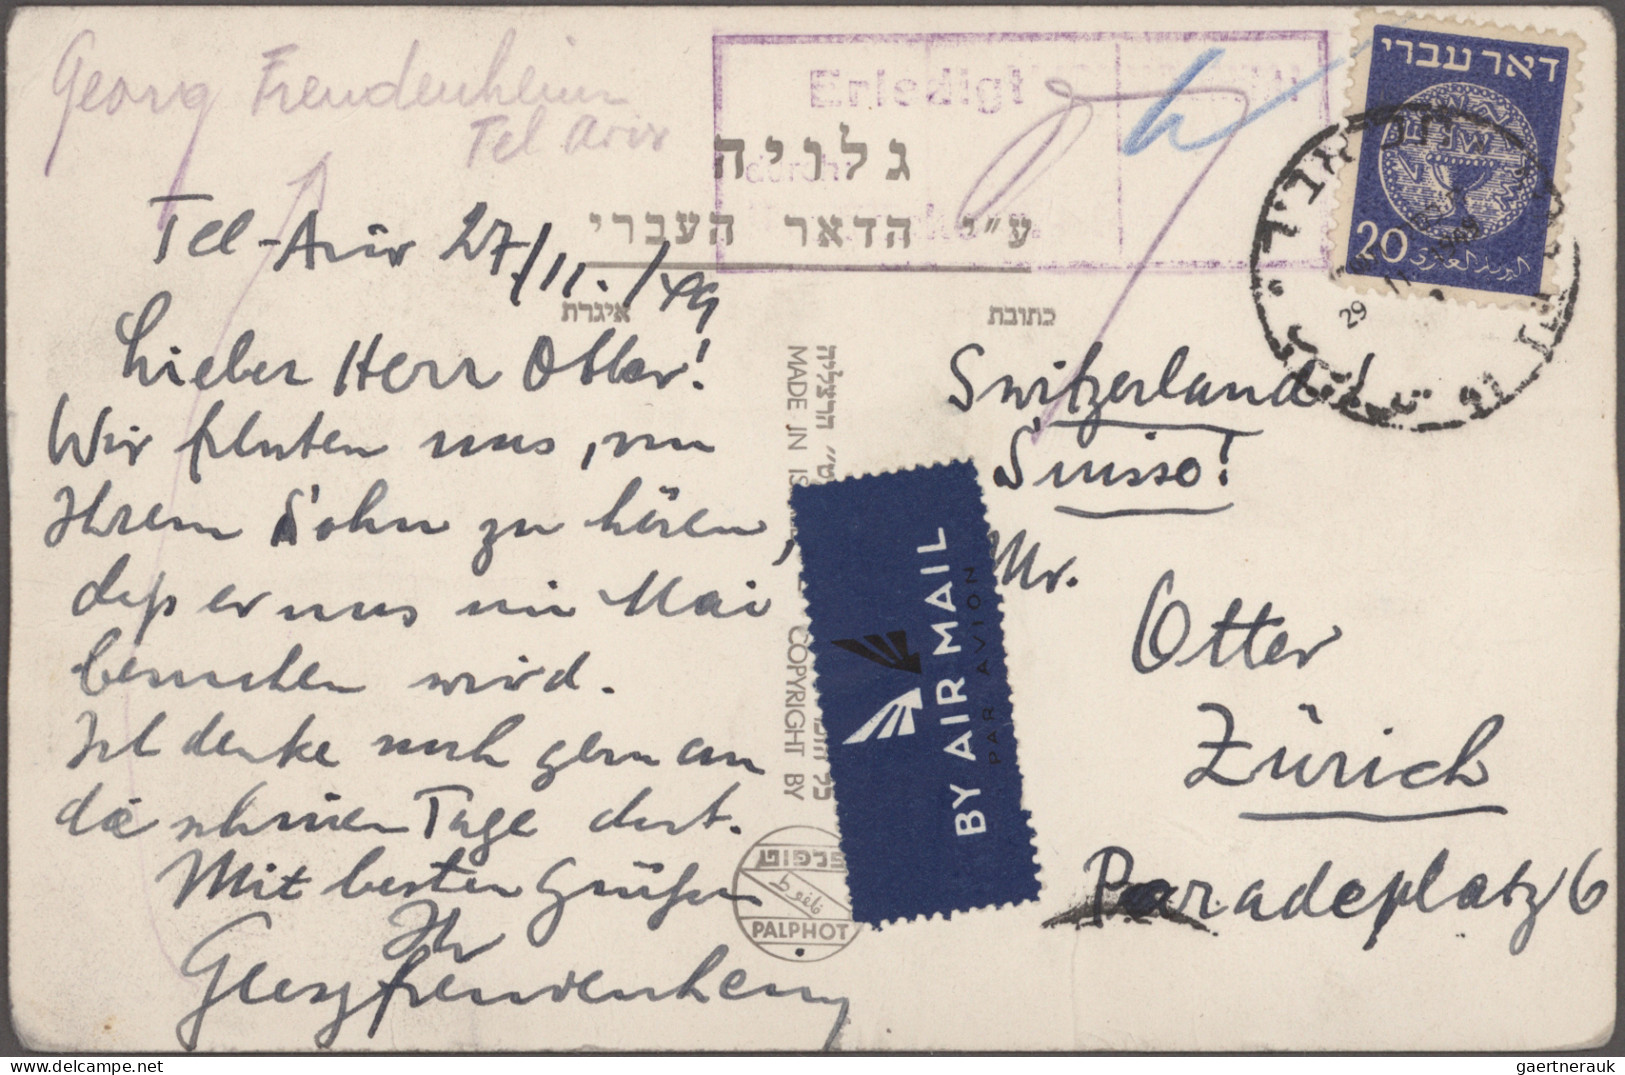 Georg Freudenheim
Tel Aviv
Erledigt
durch:
גלויה
ע״י הדאר העברי
איגרת
כתובת
דאר עברי
20
البريد العبري
תל אביב
29
Tel-Aviv 27/II./49
Lieber Herr Otter!
Wir freuten uns, von
Ihrem Sohn zu hören,
daß er uns im Mai
besuchen wird.
Ich denke noch gern an
die schönen Tage dort.
Mit besten Grüßen
Ihr
Georg Freudenheim
הרצליה
MADE IN IS
COPYRIGHT BY
פלפוט
PALPHOT
BY AIR MAIL
PAR AVION
Switzerland!
Suisse!
Mr.
Otter
Zürich
Paradeplatz 6
gaertnerauk